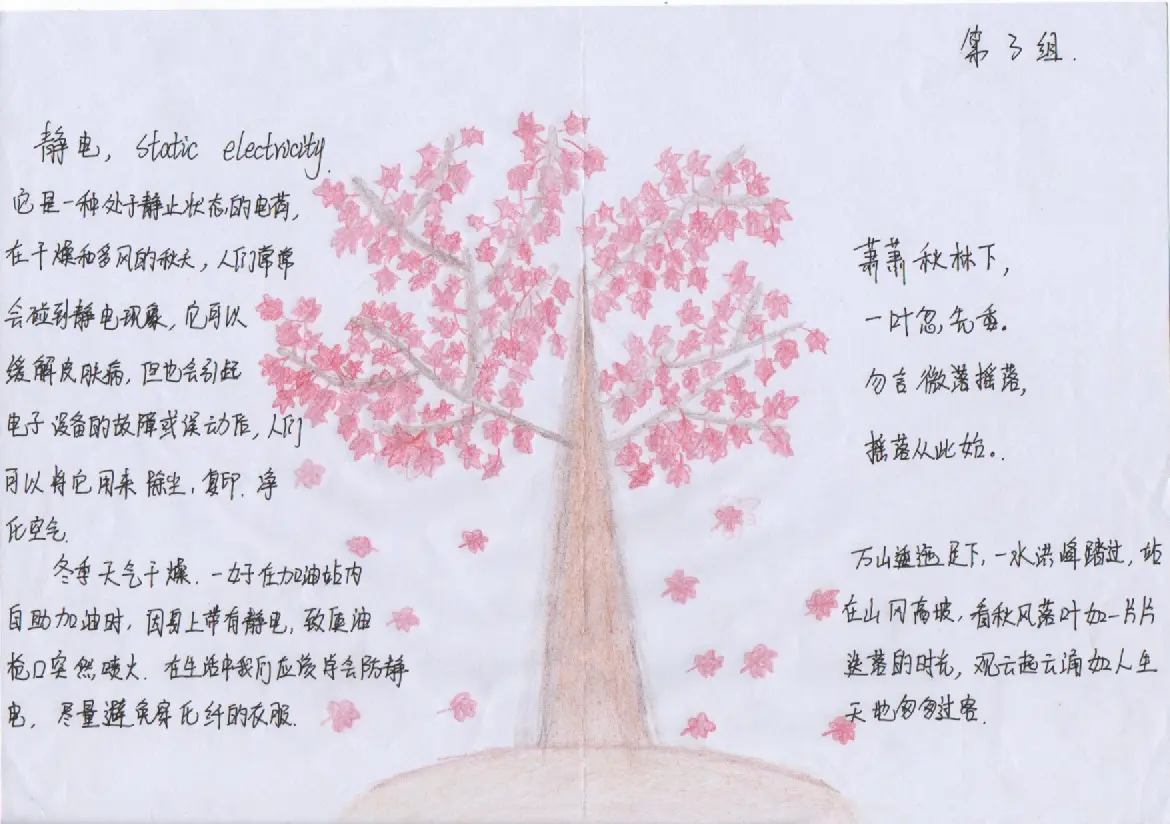 第3组.
静电, static electricity.
它是一种处于静止状态的电荷,
在干燥和多风的秋天,人们常常
会碰到静电现象,它可以
缓解皮肤病,但也会引起
电子设备的故障或误动作,人们
可以将它用来除尘,复印.净
化空气.
冬季天气干燥.一女子在加油站内
自助加油时,因身上带有静电,致使油
枪口突然喷火.在生活中我们应该学会防静
电,尽量避免穿化纤的衣服.
萧萧秋林下,
一叶忽先委。
勿言微落摇落,
摇落从此始。.
万山 足下,一水洪峰踏过,站
在山冈高坡,看秋风落叶如一片片
迭落的时光,观云起云涌如人生
天地匆匆过客.